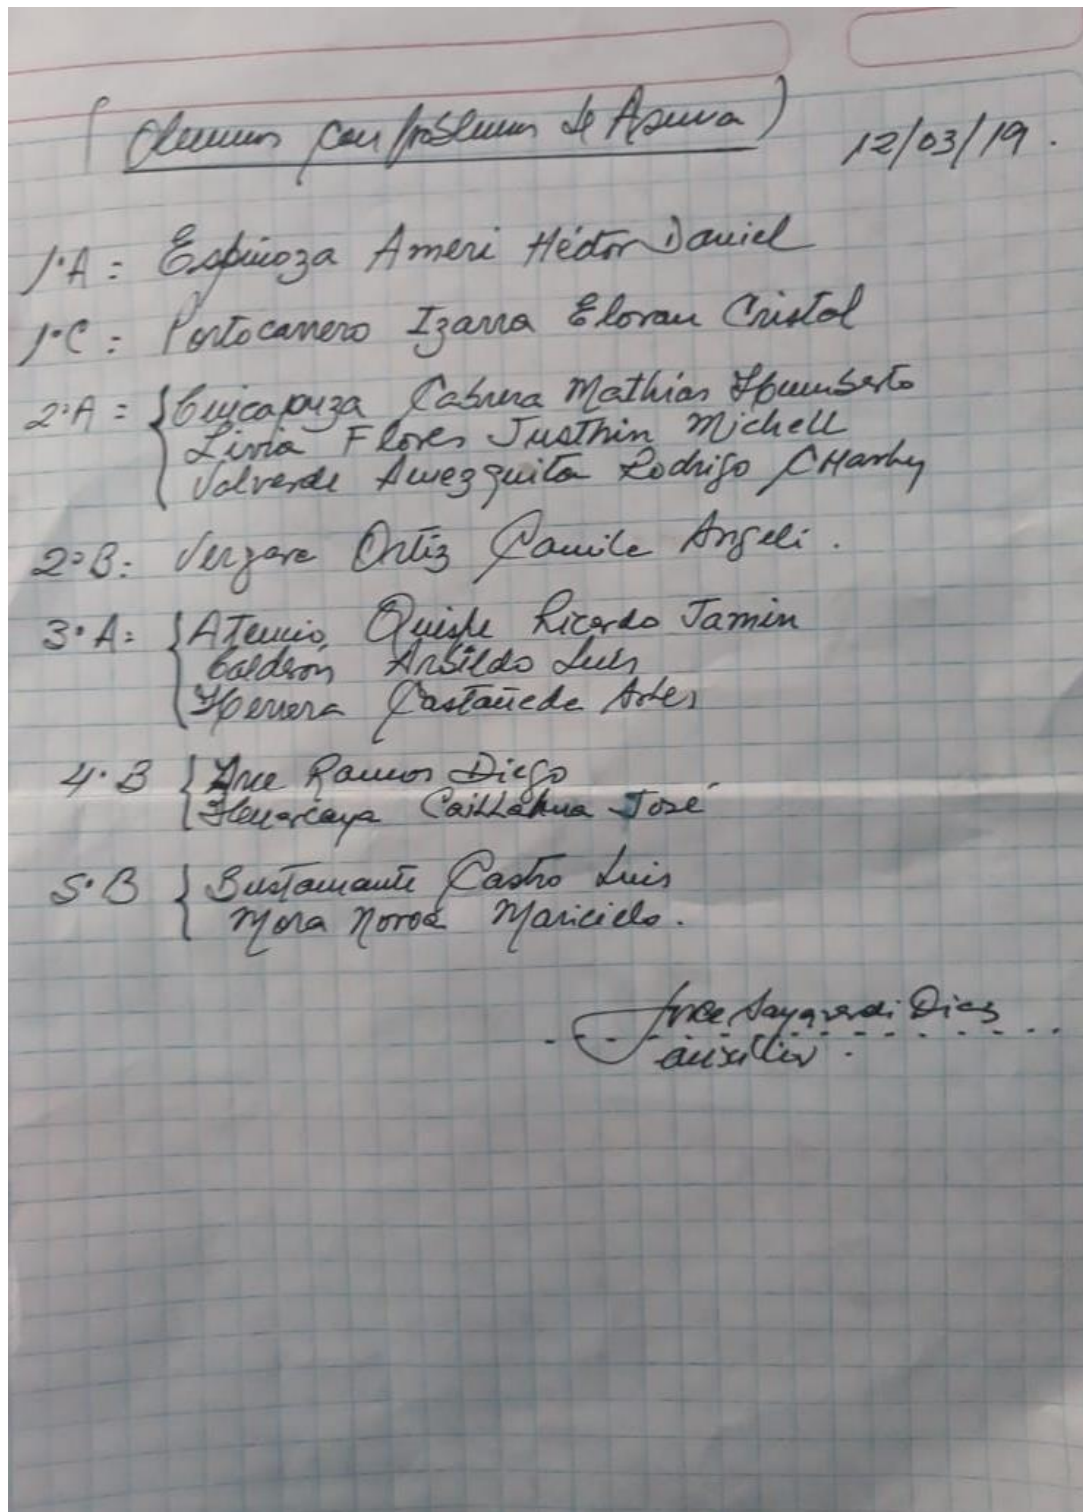 ( Alumnos con problemas de Asma ) 12/03/19.
1°A = Espinoza Ameri Héctor Daniel
1°C = Portocarrero Izarra Eloran Cristal
2°A = Cabrera Mathías Humberto
Livia Flores Justhin Michell
Valverde Amezquita Rodrigo CHarly
2°B: Vergara Ortiz Camila Angeli.
3°A: Atencio, Quispe Ricardo Jamin
Calderón Arbildo Luis
Herrera Castañeda
4°B Arce Ramos Diego
José
5°B Bustamante Castro Luis
Mora Noroa Maricielo.
Diaz
auxiliar.